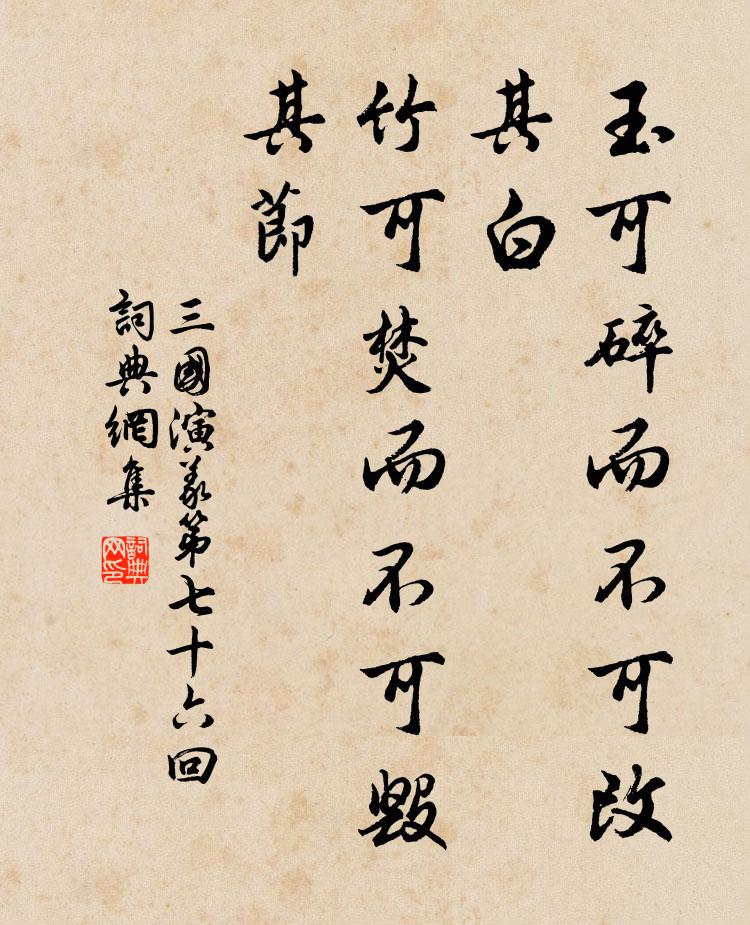 玉可碎而不可改
其白
竹可焚而不可毀
其節
三國演義第七十六回
詞典網集
詞典
网印